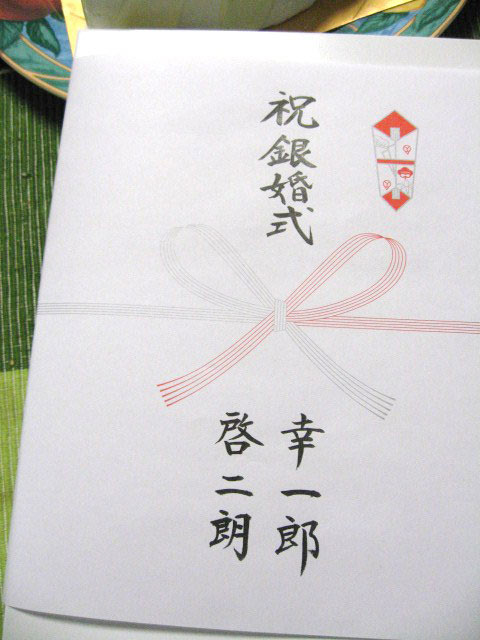 祝銀婚式
幸一郎
啓二朗